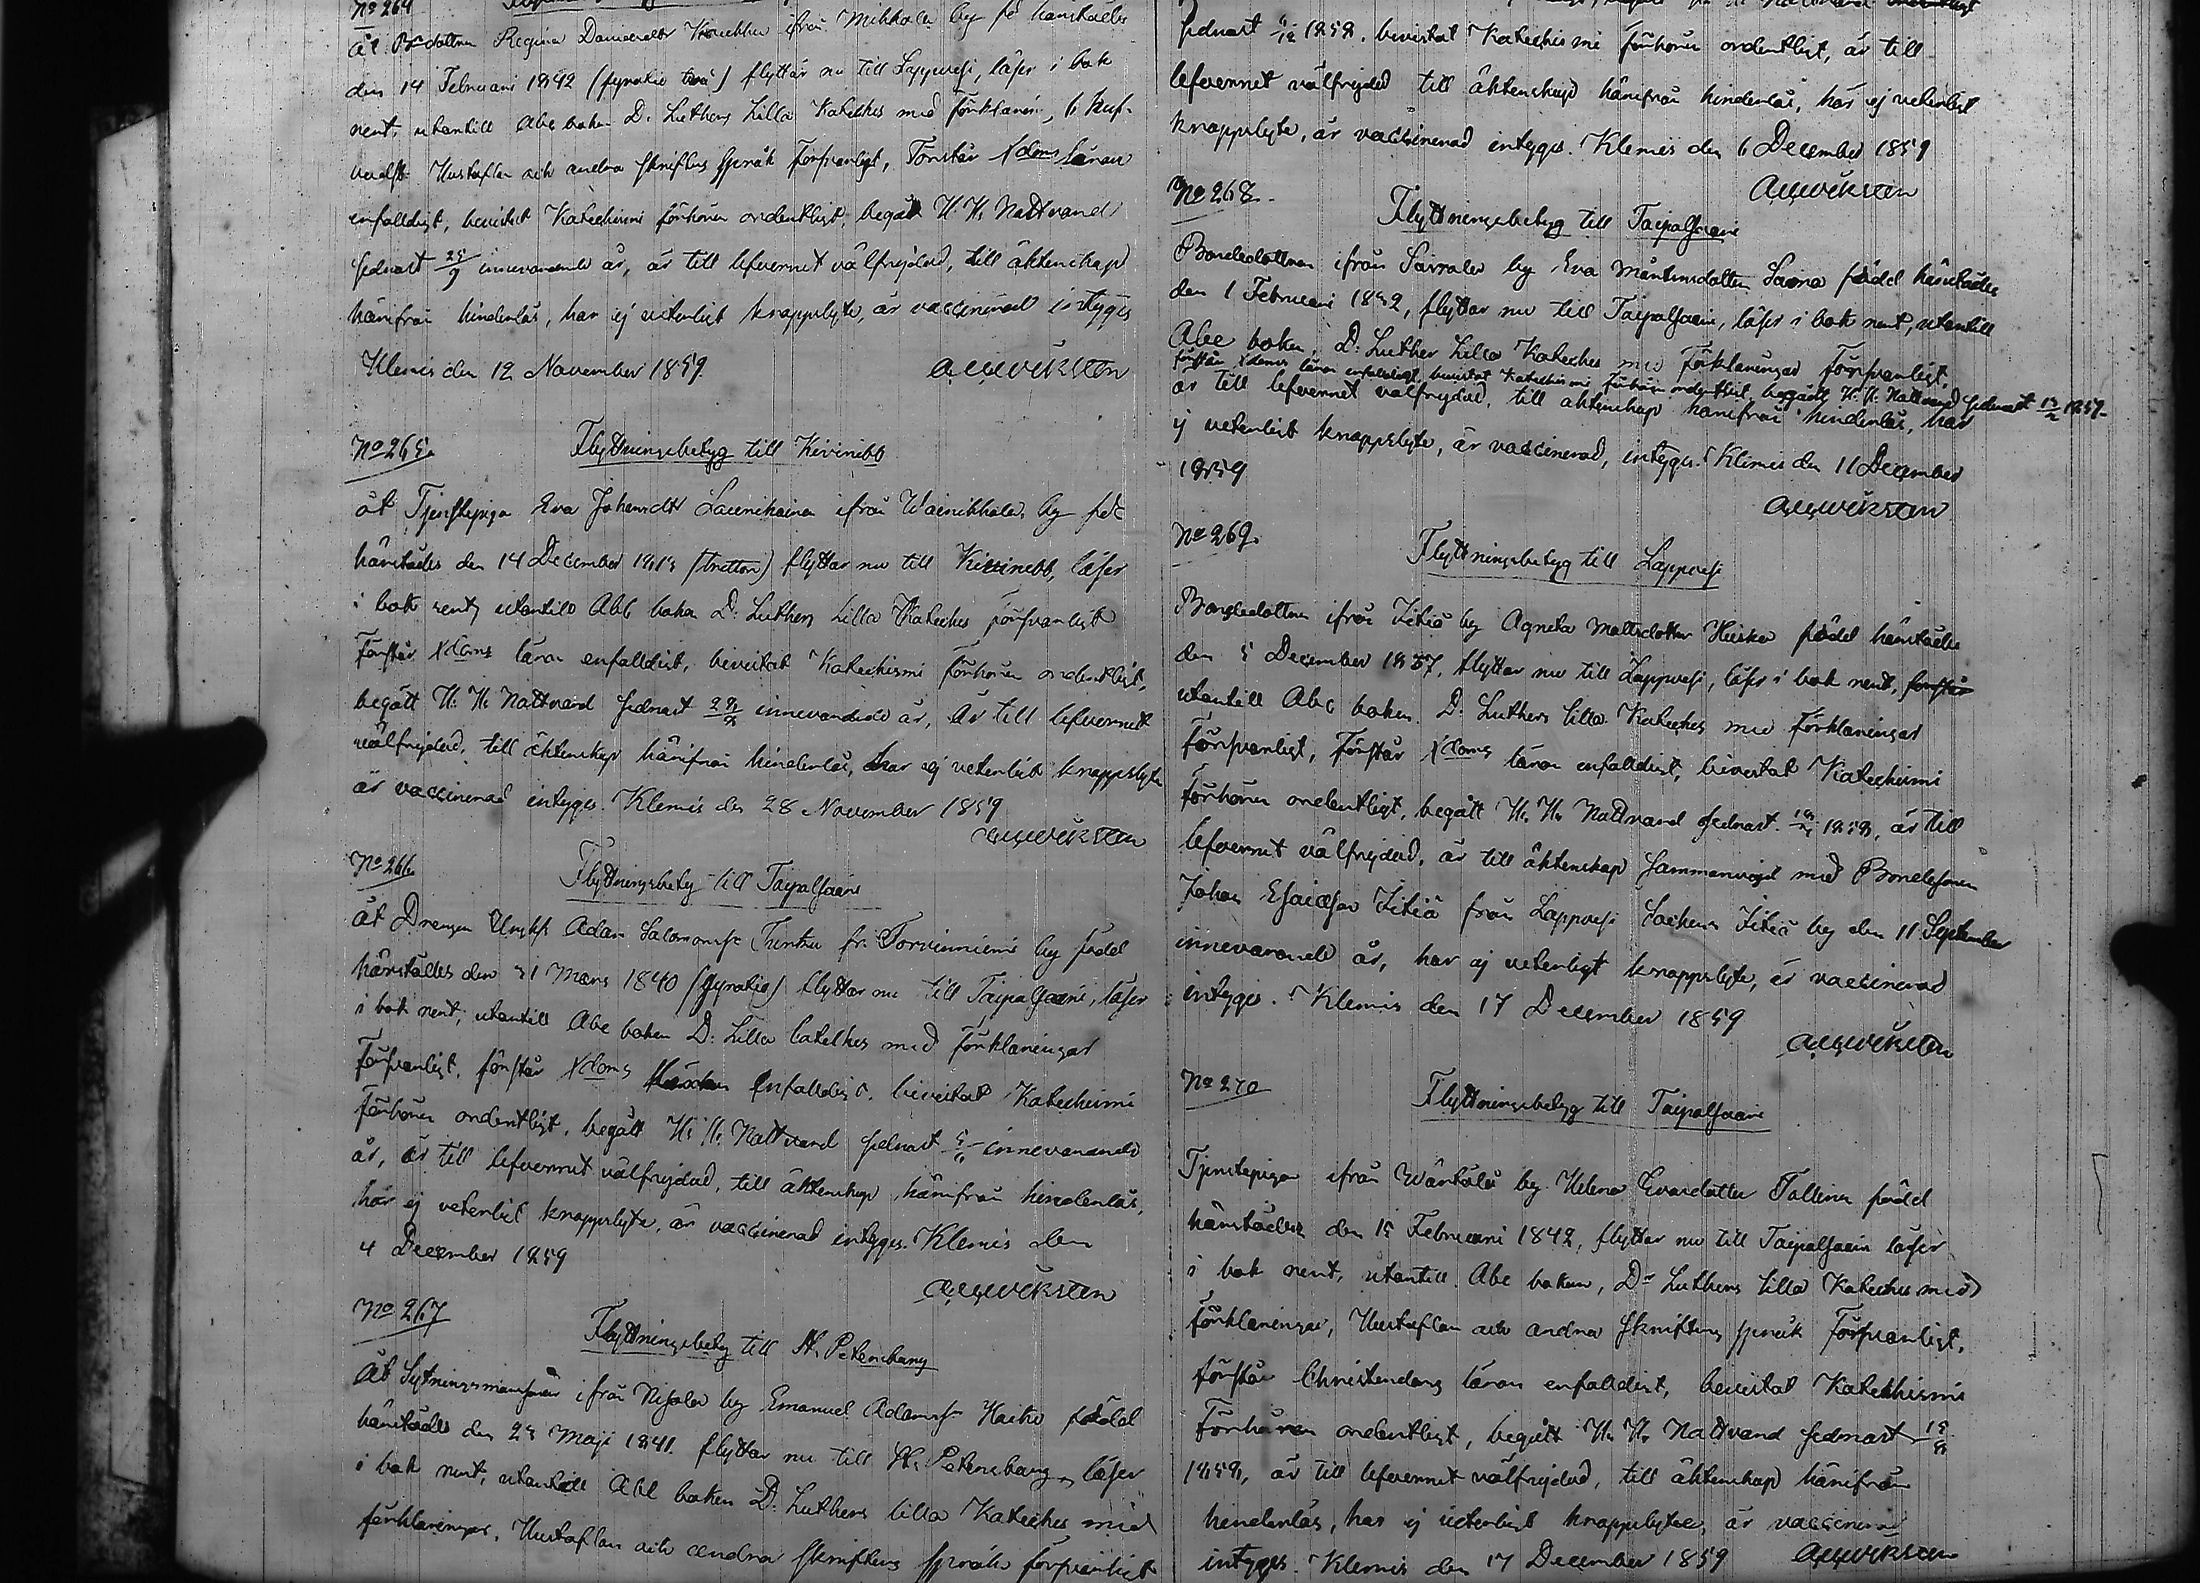 No 264
åt Bdottren Regina Danielsdtr ifrån Mikkola by fö härstädes
den 14 Februari 1842 (fyratio två) flyttar nu till Lappvesi, läser i bok
rent, utantill Abc boken D. Luthers Lilla Kateches med förklarin, 6 huf-
Hustaflan och andra skriftens språk försvarligt, Förstår Xdoms läran
enfalldigt, bevistat Katechismi förhören ordentligt, begått H. H. Nattvard
sednast 25/9 innevarande år, är till lefvernet välfrejdad, till äktenskap
härifrån hinderlös, har ej veterligt knappslyte, är vaccinerad intyges
Klemis den 12 November 1859
AGWiksten
No 265.
Flyttningsbetyg till Kivinebb
åt Tjenstepiga Eva Johansdtr Laurikainen ifrån Wainikkala by fdd
härstädes den 14 December 1813 (tretton) flyttar nu till Kivinebb, läser
i bok rent, utantill Abc boken D. Luthers Lilla Kateches försvarligt
Förstår Xdoms läran enfalldigt, bevistat Katechismi förhören ordentligt,
begått H. H. Nattvard sednast innevarande år, är till lefvernet
välfrejdad, till äktenskap härifrån hinderlös, har ej veterligt knappslyte
är vaccinerad intyges. Klemis den 28 November 1859
AGWiksten
No 266
Flyttningsbetyg till Taipalsaari
åt Drengen Adam Salomonss: Turtu fr. Torvinniemi by född
härstädes den 31 Mars 1840 (fyratio) flyttar nu till Taipalsaari, läser
i bok rent, utantill Abc boken D: Lilla Cateches med förklaringar
försvarligt, förstår Xdoms enfalldigt, bevistat Katechismi
förhören ordentligt, begått H. H. Nattvard sednast innevarande
år, är till lefvernet välfrejdad, till äktenskap härifrån hinderlös,
har ej veterligt knappslyte, är vaccinerad intyges. Klemis den
4 December 1859
AGWiksten
No 267
Flyttningsbetyg till St. Petersburg
åt Sytningsmansonen ifrån Nisola by Emanuel Adamss: född
härstädes den 23 Maji 1841. flyttar nu till St. Petersburg, läser
i bok rent, utantill Abc boken D: Luthers lilla Kateches med
förklaringar, Hustaflan och andra skriftens språk försvarligt
sednast 6/12 1858. bevistat Katechismi förhören ordentligt, är till
lefvernet välfrejdad till äktenskap härifrån hinderlös, har ej veterligt
knappslyte, är vaccinerad intyges. Klemis den 6 December 1859
AGWiksten
No 268.
Flyttningsbetyg till Taipalsaari
Bondedottren ifrån Sarvalax by Eva Mårtensdotter född härstädes
den 1 Februari 1832, flyttar nu till Taipalsaari, läser i bok rent, utantill
Abc boken, D: Luther Lilla Kateches med Förklaringar Försvarligt.
förstår Xdoms läran enfalldigt, bevistat Katechismi förhören ordentligt, begått H. H. Nattvard sednast 1859.
är till lefvernet välfrejdad, till äktenskap härifrån hinderlös, har
ej veterligt knappslyte, är vaccinerad, intyges. Klemis den 11 December
1859
AGWiksten
No 269.
Flyttningsbetyg till Lappvesi
Bondedottren ifrån Jitiä by Agneta Mattsdotter född härstädes
den 5 December 1837, flyttar nu till Lappvesi, läser i bok rent, förstår
utantill Abc boken. D: Luthers lilla Kateches med förklaringar
försvarligt, förstår Xdoms läran enfalldigt, bevistat Katechismi
förhören ordentligt, begått H. H. Nattvard sednast 1858, är till
lefvernet välfrejdad, är till äktenskap sammanvigd med Bondesonen
Johan Esaiasson Jitiä från Lappvesi Sochen Jitiä by den 11 September
innevarande år, har ej veterligt knappslyte, är vaccinerad
intyges. Klemis den 17 December 1859
AGWiksten
No 270
Flyttningsbetyg till Taipalsaari
Tjenstepigan ifrån by Helena Evasdotter Tallinen född
härstädes den 15 Februari 1842, flyttar nu till Taipalsaari läser
i bok rent, utantill Abc boken, Dr Luthers lilla Kateches med
förklaringar, Hustaflan och andra skriftens språk försvarligt,
förstår Christendoms läran enfalldigt, bevistat Katekhismi
förhören ordentligt, begått H. H. Nattvard sednast
1858, är till lefvernet välfrejdad, till äktenskap härifrån
hinderlös, har ej veterligt knappslyte, är vaccinerad
intyges. Klemis den 17 December 1859 AGWiksten